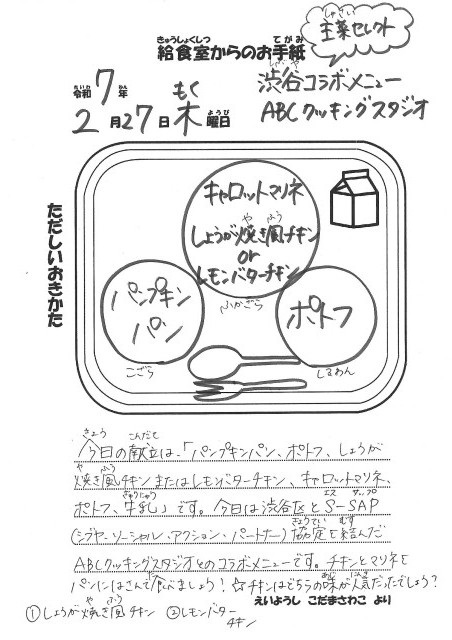 主菜セレクト
給食室からのお手紙
渋谷コラボメニュー
令和7年
2月27日木曜日
ABCクッキングスタジオ
ただしいおきかた
キャロットマリネ
しょうが焼き風チキン
or
レモンバターチキン
ふかざら
パンプキン
パン
こざら
ポトフ
しるわん
今日の献立は、「パンプキンパン、ポトフ、しょうが
焼き風チキンまたはレモンバターチキン、キャロットマリネ、
ポトフ、牛乳」です。今日は渋谷区とS-SAP
(シブヤ・ソーシャル・アクション・パートナー)協定を結んだ
ABCクッキングスタジオとのコラボメニューです。チキンとマリネを
パンにはさんで食べましょう!☆チキンはどちらの味が人気だったでしょう?
えいようし こだまさわこ より
①しょうが焼き風チキン ②レモンバター
チキン